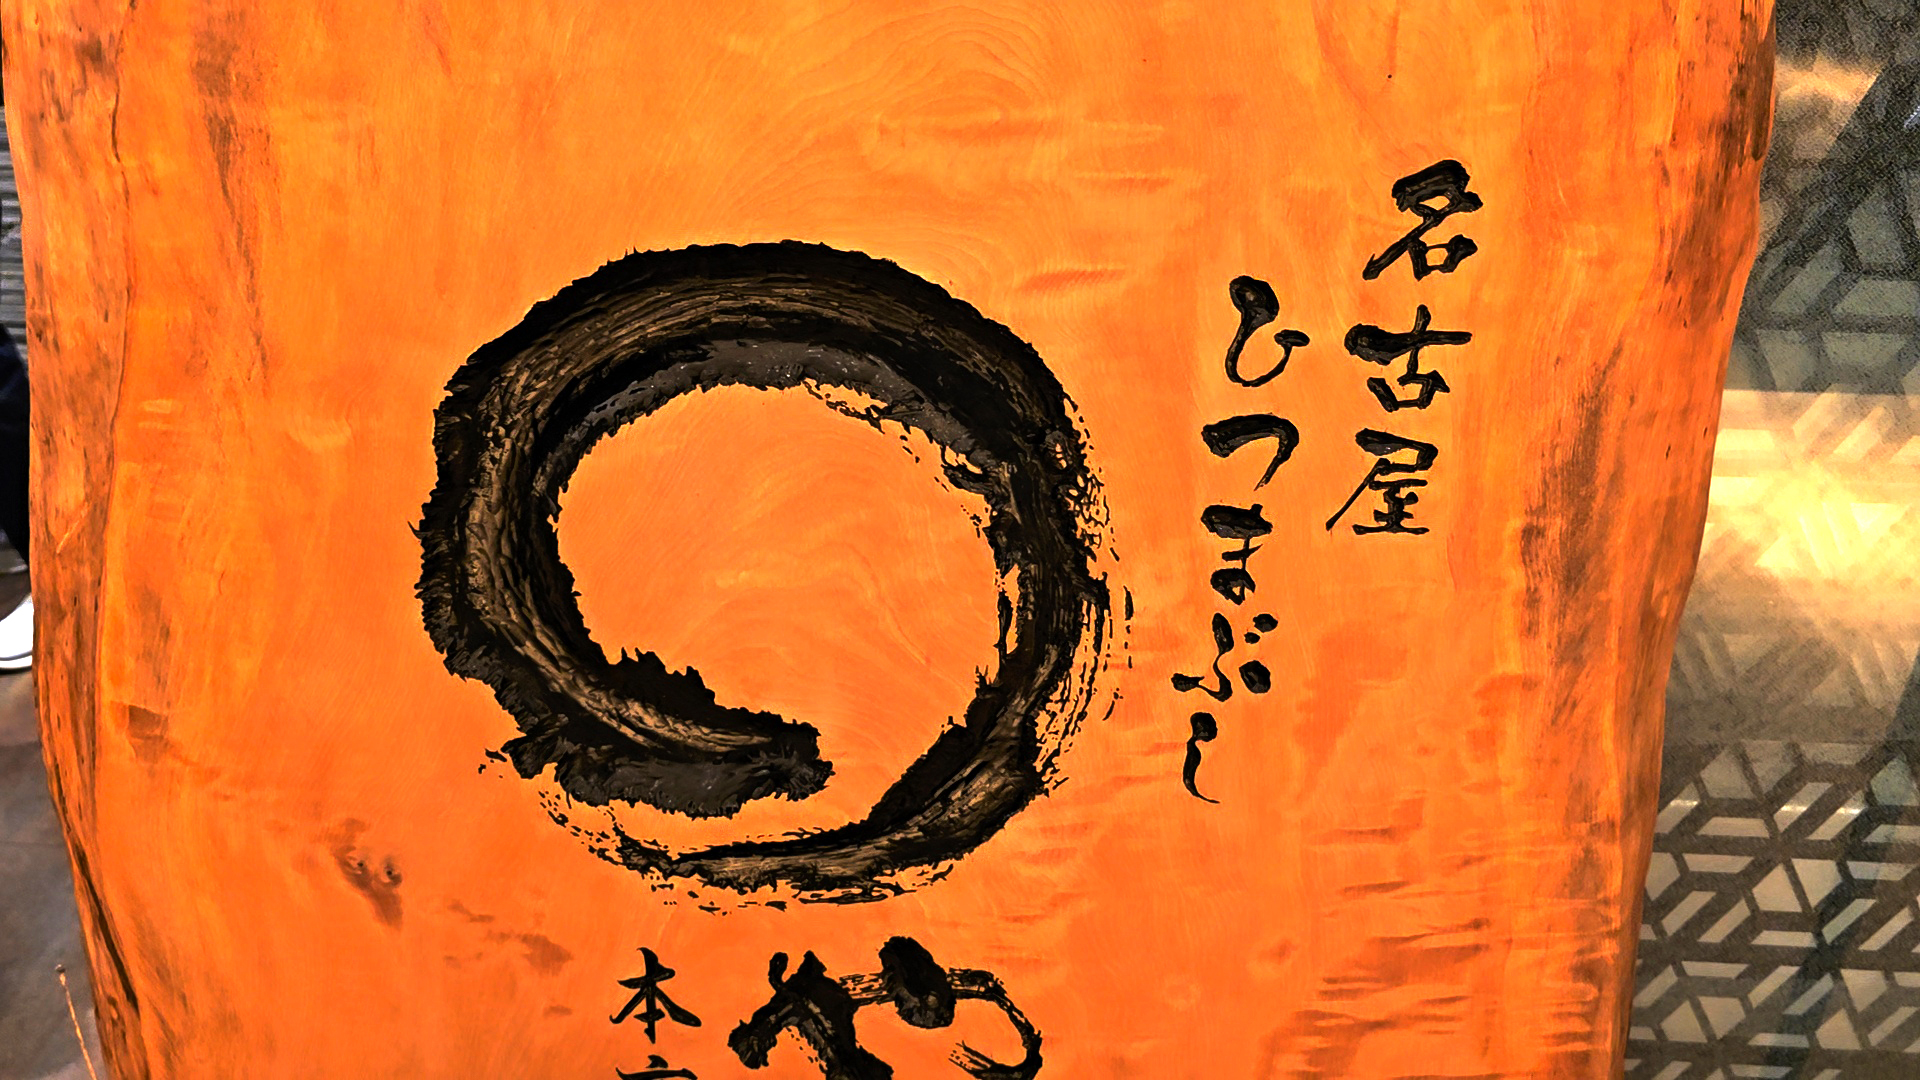 名古屋
ひつまぶし
や
本